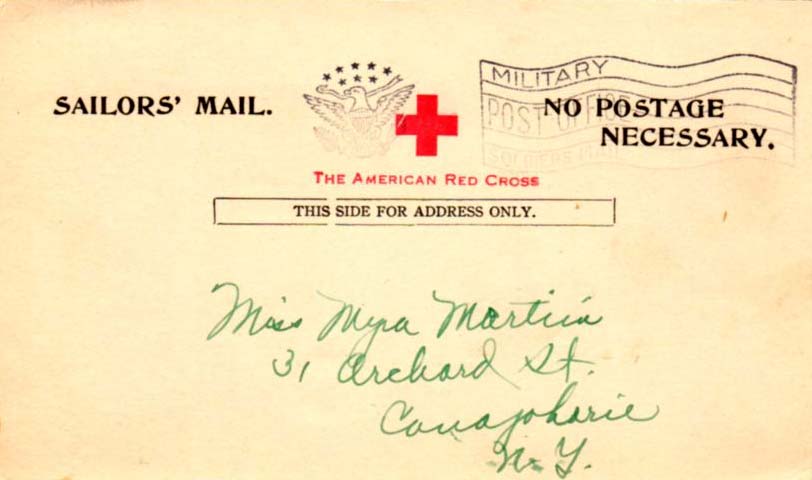 SAILORS' MAIL.
MILITARY
POST OFFICE
SOLDIERS MAIL
NO POSTAGE
NECESSARY.
THE AMERICAN RED CROSS
THIS SIDE FOR ADDRESS ONLY.
Miss Myra Martin
31 Orchard St.
Canajoharie
N. Y.